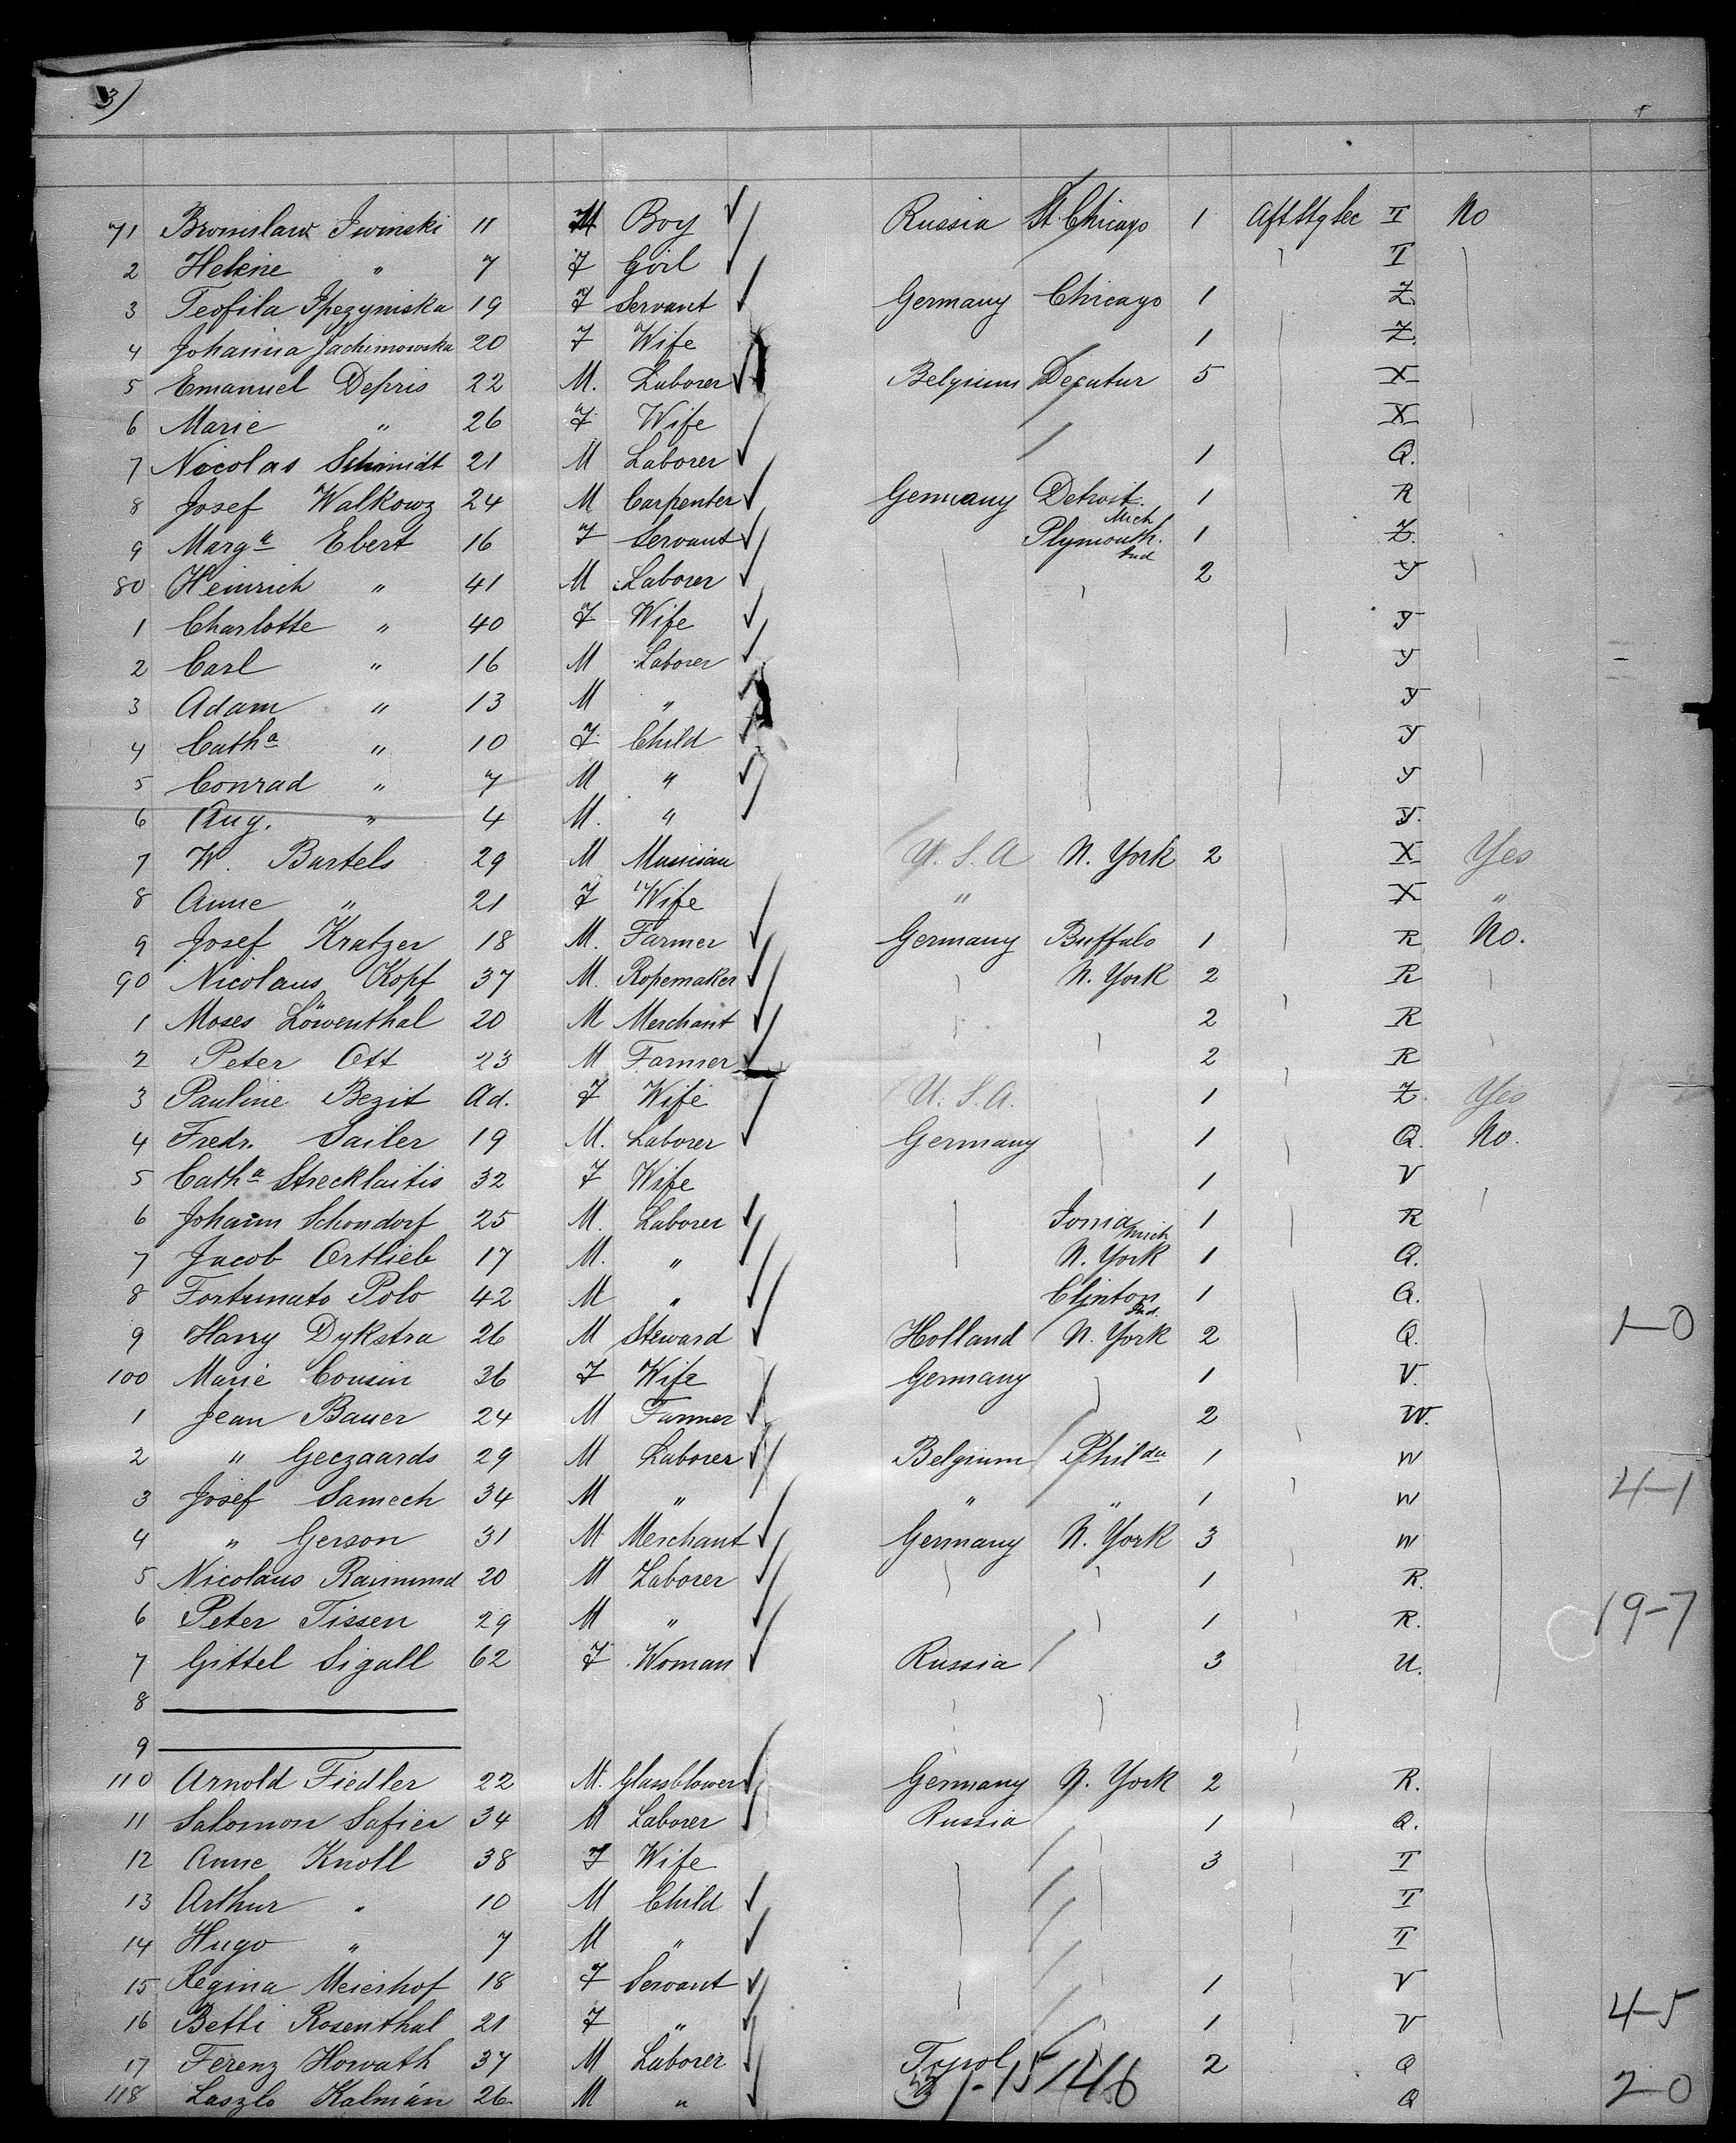 3)
71 Bronislaw Iwinski 11 M Boy Russia Chicago 1 No
2 Helene " 7 F Girl
3 Teofila 19 F Servant Germany Chicago 1 Z
4 Johanna Jachimowska 20 F Wife 1 Z
5 Emanuel Depris 22 M. Laborer Belgium Decatur 5 X
6 Marie " 26 F Wife X
7 Nicolas Schmidt 21 M Laborer 1 Q.
8 Josef Walkowz 24 M Carpenter Germany Detroit. Mich 1 R
9 Marga Ebert 16 F Servant Plymouth. Ind 1 Z.
80 Heinrich " 41 M Laborer 2 Y
1 Charlotte " 40 F Wife Y
2 Carl " 16 M Laborer Y
3 Adam " 13 M " Y
4 Catha " 10 F Child Y
5 Conrad " 7 M " Y
6 Aug. " 4 M. " Y.
7 W. Bartels 29 M Musician U. S. A N. York 2 X Yes
8 Anne " 21 F Wife " X "
9 Josef Kratzer 18 M. Farmer Germany Buffalo 1 R No.
90 Nicolaus Kopf 37 M. Ropemaker N. York 2 R
1 Moses Löwenthal 20 M Merchant 2 R
2 Peter Ott 23 M Farmer 2 R
3 Pauline Bezit Ad. F Wife U. S. A. 1 Z. Yes
4 Fredr. Sailer 19 M. Laborer Germany 1 Q. No.
5 Catha Strecklaitis 32 F Wife 1 V
6 Johann Schondorf 25 M. Laborer Ionia Mich 1 R
7 Jacob Ortlieb 17 M. " N. York 1 Q.
8 Fortunato Polo 42 M " Clinton Ind. 1 Q.
9 Harry Dykstra 26 M Steward Holland N. York 2 Q. 1-0
100 Marie Cousin 36 F Wife Germany 1 V.
1 Jean Bauer 24 M Farmer 2 W.
2 " Geczaards 29 M Laborer Belgium Philda 1 W
3 Josef Samech 34 M " " " 1 W 4-1
4 " Gerson 31 M Merchant Germany N. York 3 W
5 Nicolaus Raimund 20 M Laborer 1 R.
6 Peter Tissen 29 M " 1 R. 19-7
7 Gittel Sigall 62 F Woman Russia 3 U.
8
9
110 Arnold Fiedler 22 M. Glassblower Germany N. York 2 R.
11 Salomon Safier 34 M Laborer Russia 1 Q.
12 Anne Knoll 38 F Wife 3 T
13 Arthur " 10 M Child T
14 Hugo " 7 M " T
15 Regina Meierhof 18 F Servant 1 V
16 Betti Rosenthal 21 F " 1 V 4-5
17 Ferenz Howath 37 M Laborer 2 Q
118 Laszlo Kalmán 26 M " Q 2-0